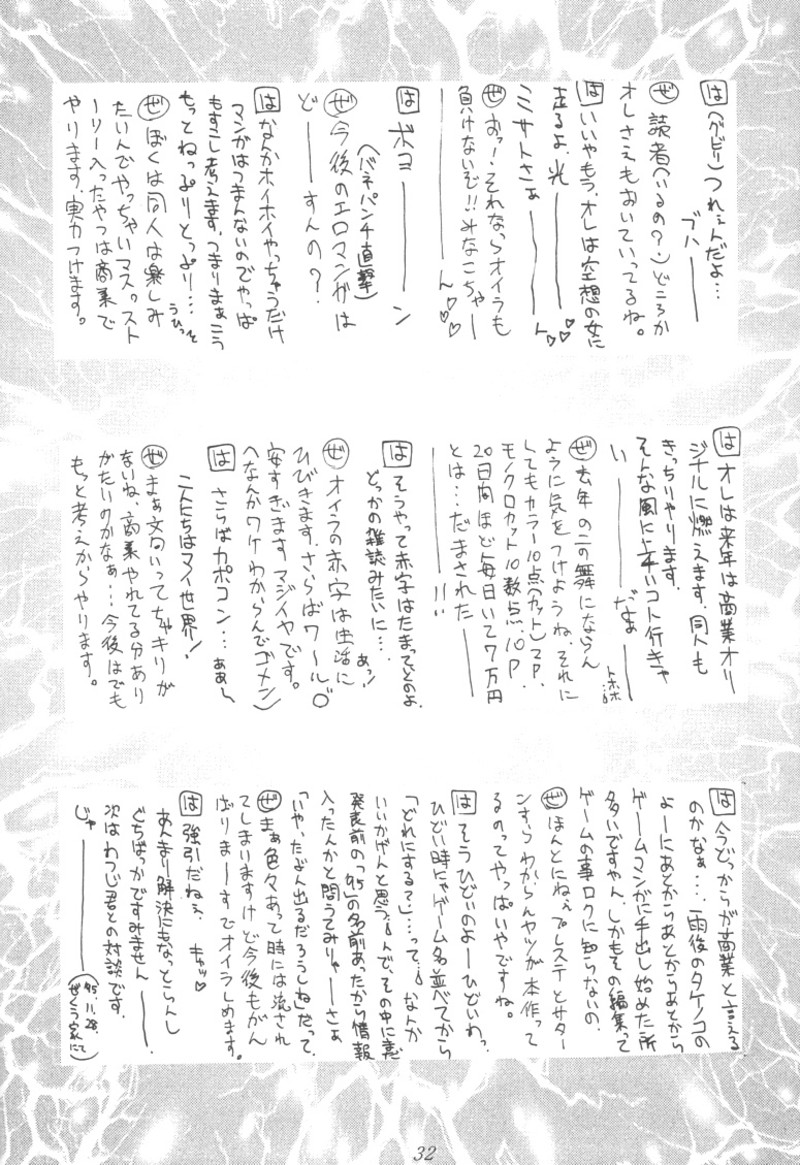 は (グビリ)つれぇんだよ…
ブハ───
ぜ 読者(いるの?)どころか
オレさえもおいていってるね。
は いいやもう、オレは空想の女に
走るよ、
ミサトさぁ────ん♡♡
ぜ おっ!それならオイラも
負けないぞ!!みなこちゃー
────ん♡♡
は ボコ────ン
(バネパンチ直撃)
ぜ 今後のエロマンガは
ど───すんの?
は なんかホイホイやっちゃうだけ
マンガはつまんないのでやっぱ
もすこし考えます。つまりまぁこう
もっとねっぷりとっぷり…うひっっと
ぜ ぼくは同人は楽しみ
たいんでやっちゃいマス。スト
ーリー入ったやつは商業で
やります、実力つけます。
は オレは来年は商業オリ
ジナルに燃えます、同人も
きっちりやります。
そんな風に上手いコト行きゃ
い────だぁ────トホホ…
ぜ 去年の二の舞にならん
ように気をつけようね、それに
してもカラー10点(カット)2P、
モノクロカット10数点、10P
20日間ほど毎日いて7万円
とは…だまされた──
────!!
は そうやって赤字はたまってくのよ、
どっかの雑誌みたいに…
あっ!
ぜ オイラの赤字は生活に
ひびきます、さらばワールド
安すぎます マジイヤです。
(なんかワケわからんでゴメン)
は さらばカポコン…ああ〜
こんにちはマイ世界!
ぜ まぁ文句いってちゃキリが
ないね、商業やれてる分あり
がたいのかなぁ…今後はでも
もっと考えからやります。
は 今どっからが商業と言える
のかなぁ…雨後のタケノコの
よーにあとからあとからあとから
ゲームマンガに手出し始めた所
多いですやん、しかもその編集って
ゲームの事ロクに知らないの、
ぜ ほんとにねぇプレステとサター
ンすらわからんヤツが本作って
るのってやっぱいやですね。
は そうひどいのよーひどいわっ
ひどい時にゃゲーム名並べてから
「どれにする?」…って、なんか
いいかげんと思う。んで、その中に未
発表前の「'95」の名前あったから情報
入ったんかと問うてみりゃーさぁ
「いや、たぶん出るだろうしね」だって、
ぜ まぁ色々あって時には流され
てしまいますけど今後もがん
ばりまーすでオイラしめます。
は 強引だねぇ、キャッ♡
あんまり解決にもなっとらんし
ぐちばっかですみません───。
次はわつじ君との対談です。
じゃ────('95.11.28. ぜくう家にて)
32